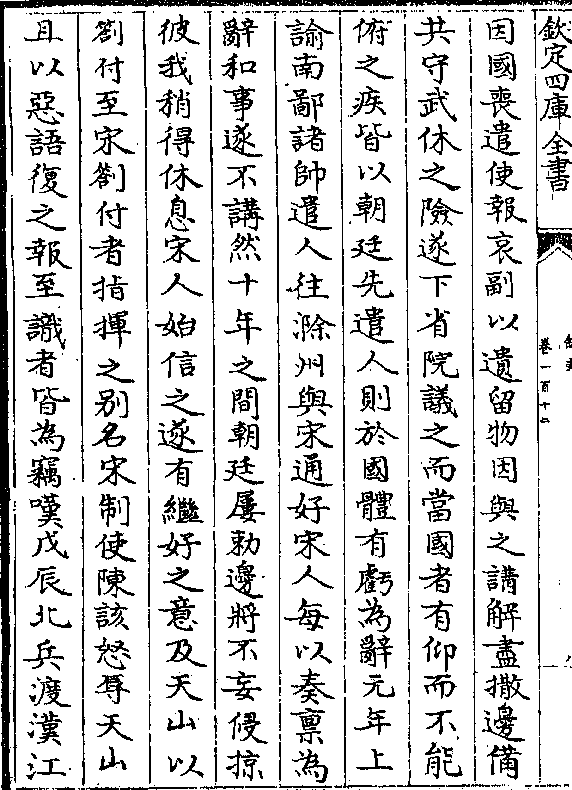 欽定四庫全書
金史
卷一百十二
因國喪遣使報哀副以遺留物因與之講解盡撤邊備
共守武休之險遂下省院議之而當國者有仰而不能
俯之疾皆以朝廷先遣人則於國體有虧為辭元年上
諭南鄙諸帥遣人往滁州與宋通好宋人每以奏禀為
辭和事遂不講然十年之間朝廷屢勅邊將不妄侵掠
彼我稍得休息宋人始信之遂有繼好之意及天山以
劄付至宋劄付者指揮之别名宋制使陳該怒辱天山
且以惡語復之報至識者皆為竊嘆戊辰北兵渡漢江